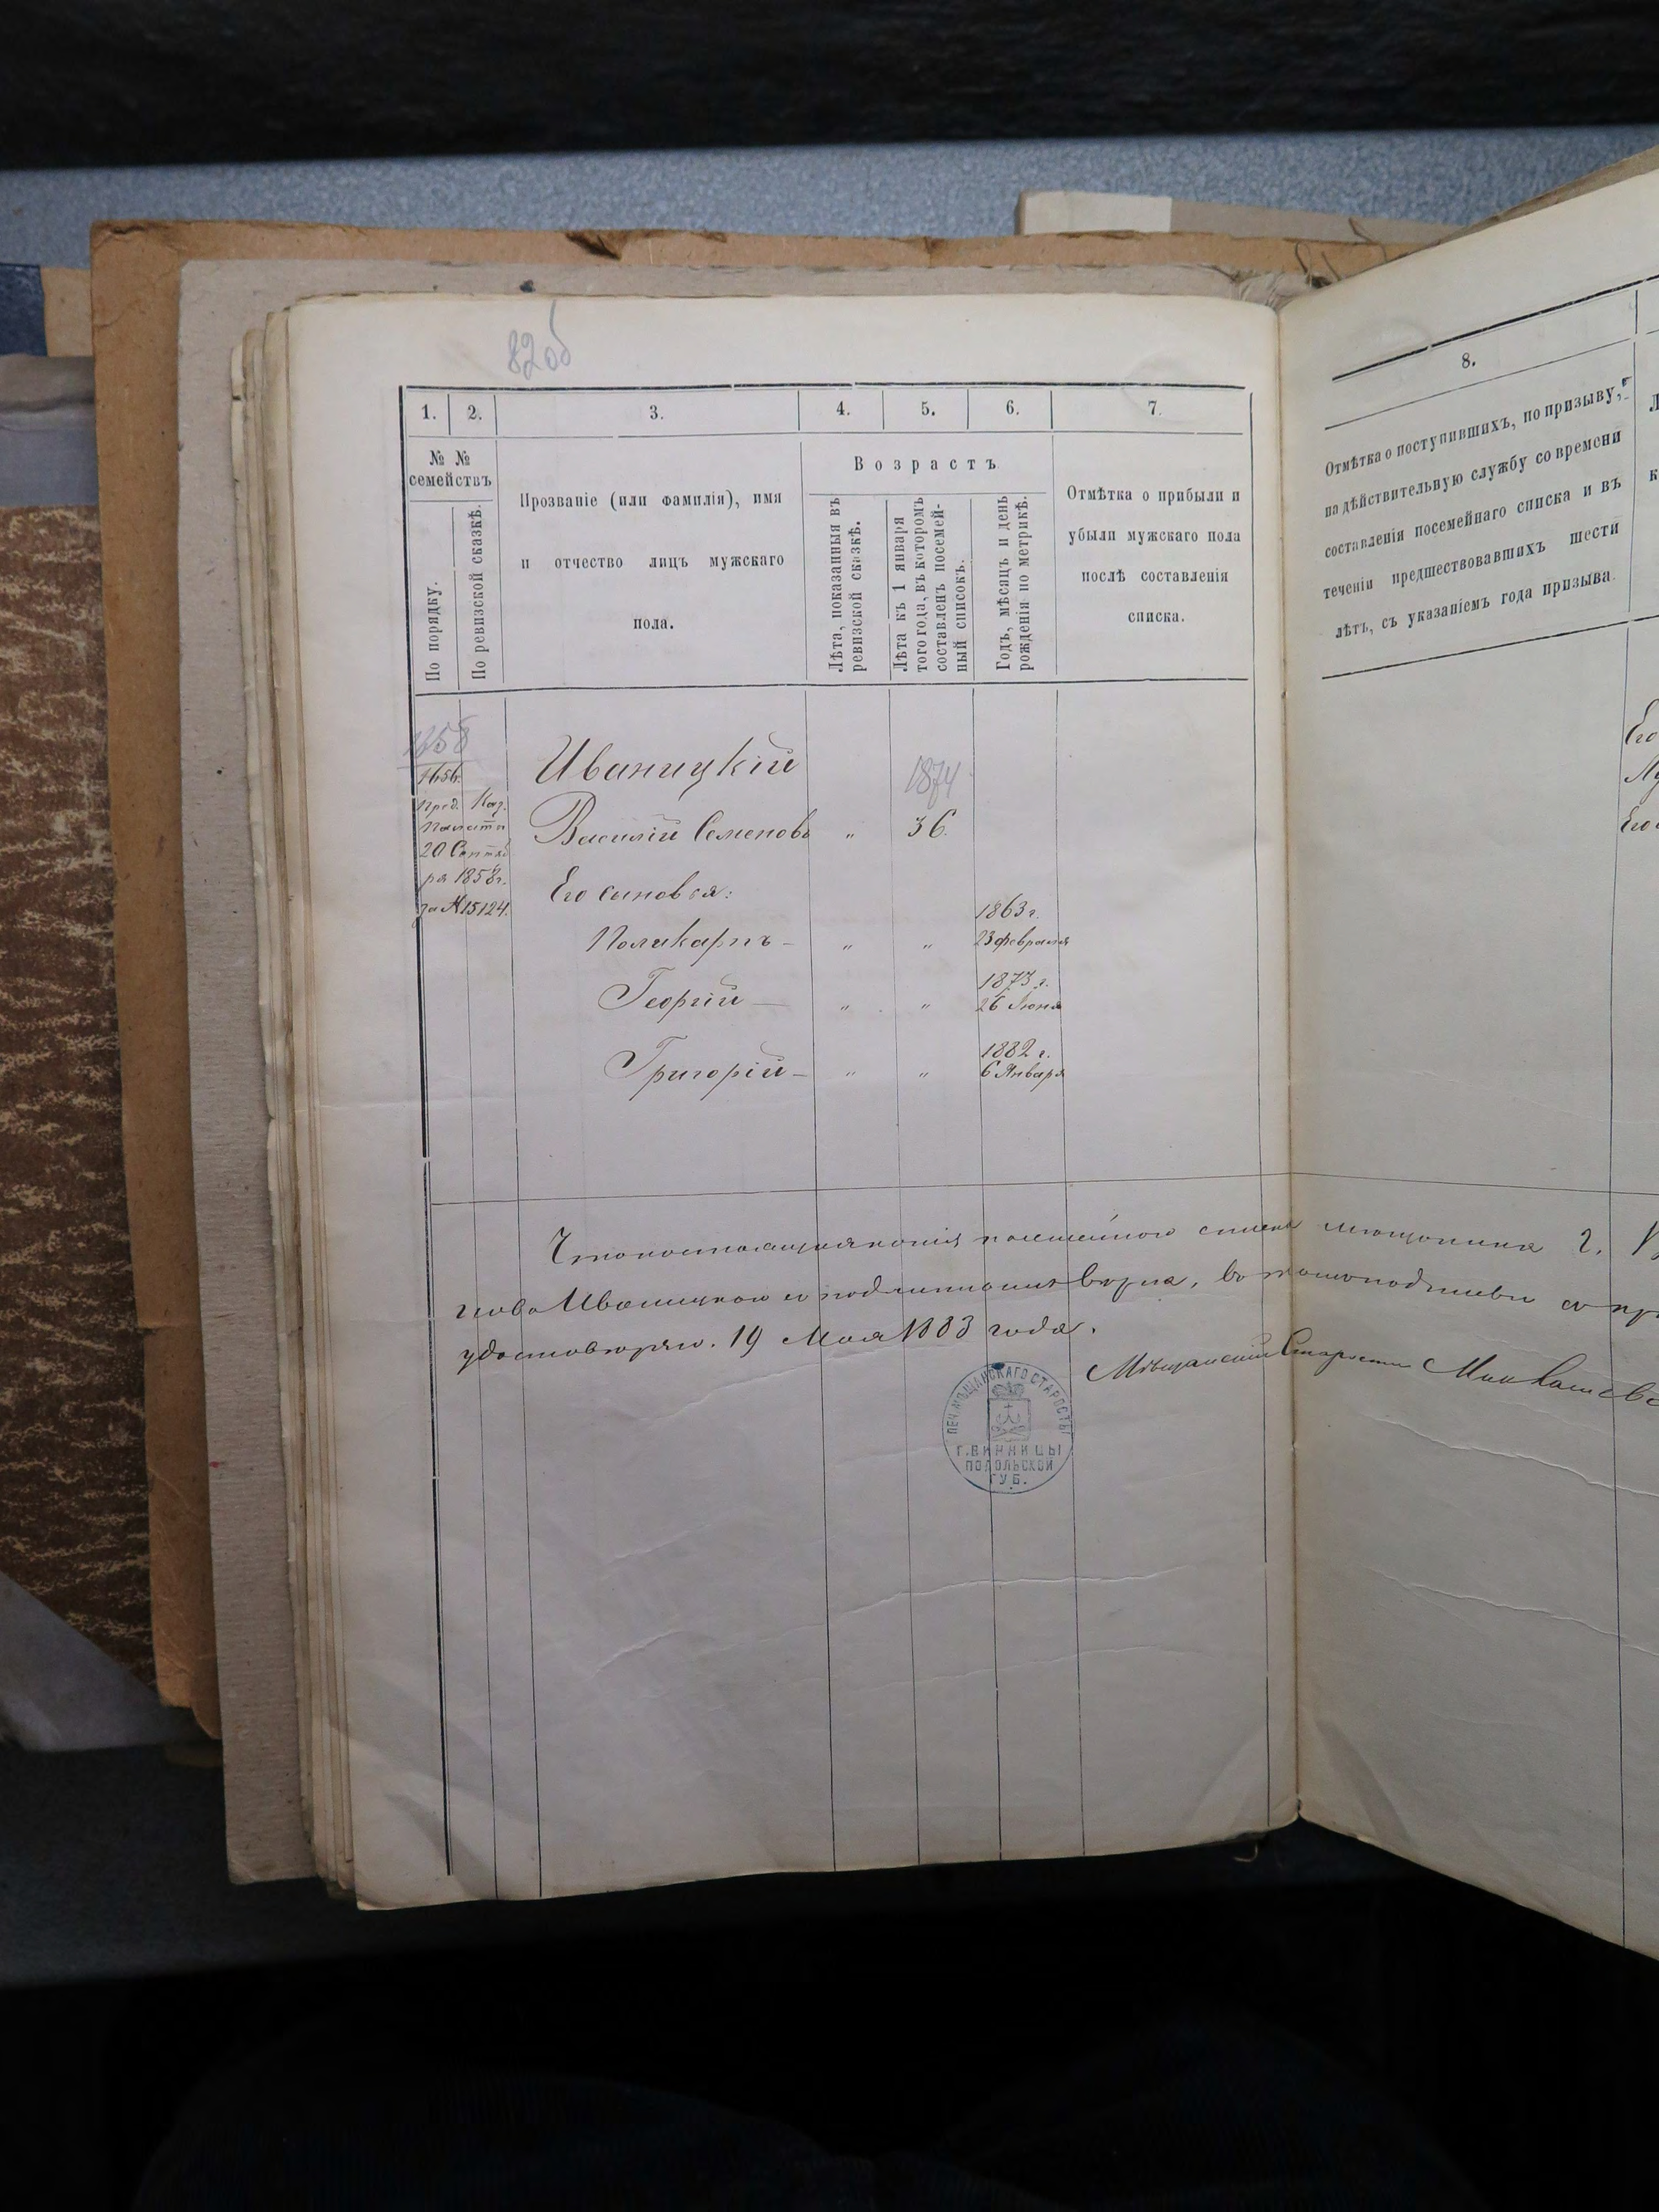 82 об
1. 2. 3. 4. 5. 6. 7.
№ №
семействъ
По порядку.
По ревизской сказкѣ.
Прозваніе (или фамилія), имя
и отчество лицъ мужскаго
пола.
Возрастъ
Лѣта, показанныя въ
ревизской сказкѣ.
Лѣта къ 1 января
того года, въ которомъ
составленъ посемей-
ный списокъ.
Годъ, мѣсяцъ и день
рожденія по метрикѣ.
Отмѣтка о прибыли и
убыли мужскаго пола
послѣ составленія
списка.
1656.
Пред. Каз.
Палаты
20 Сентяб
ря 1858 г.
за № 15124.
Иваницкій
1874
Василій Семеновъ „ 36.
Его сыновья:
1863 г.
Поликарпъ — „ „ 23 февраля
1873 г.
Георгій — „ „ 26 Іюня
1882 г.
Григорій — „ „ 6 Января
Что настоящая копія посемейнаго списка мещанина г.
Иваницкаго съ подлиннымъ верна, въ томъ подписью
удостоверяю. 19 Мая 1883 года.
Мѣщанскій Староста
ПЕЧ. МѢЩАНСКАГО СТАРОСТЫ
Г. ВИННИЦЫ
ПОДОЛЬСКОЙ
ГУБ.
8.
Отмѣтка о поступившихъ, по призыву,
на дѣйствительную службу со времени
составленія посемейнаго списка и въ
теченіи предшествовавшихъ шести
лѣтъ, съ указаніемъ года призыва.
Его